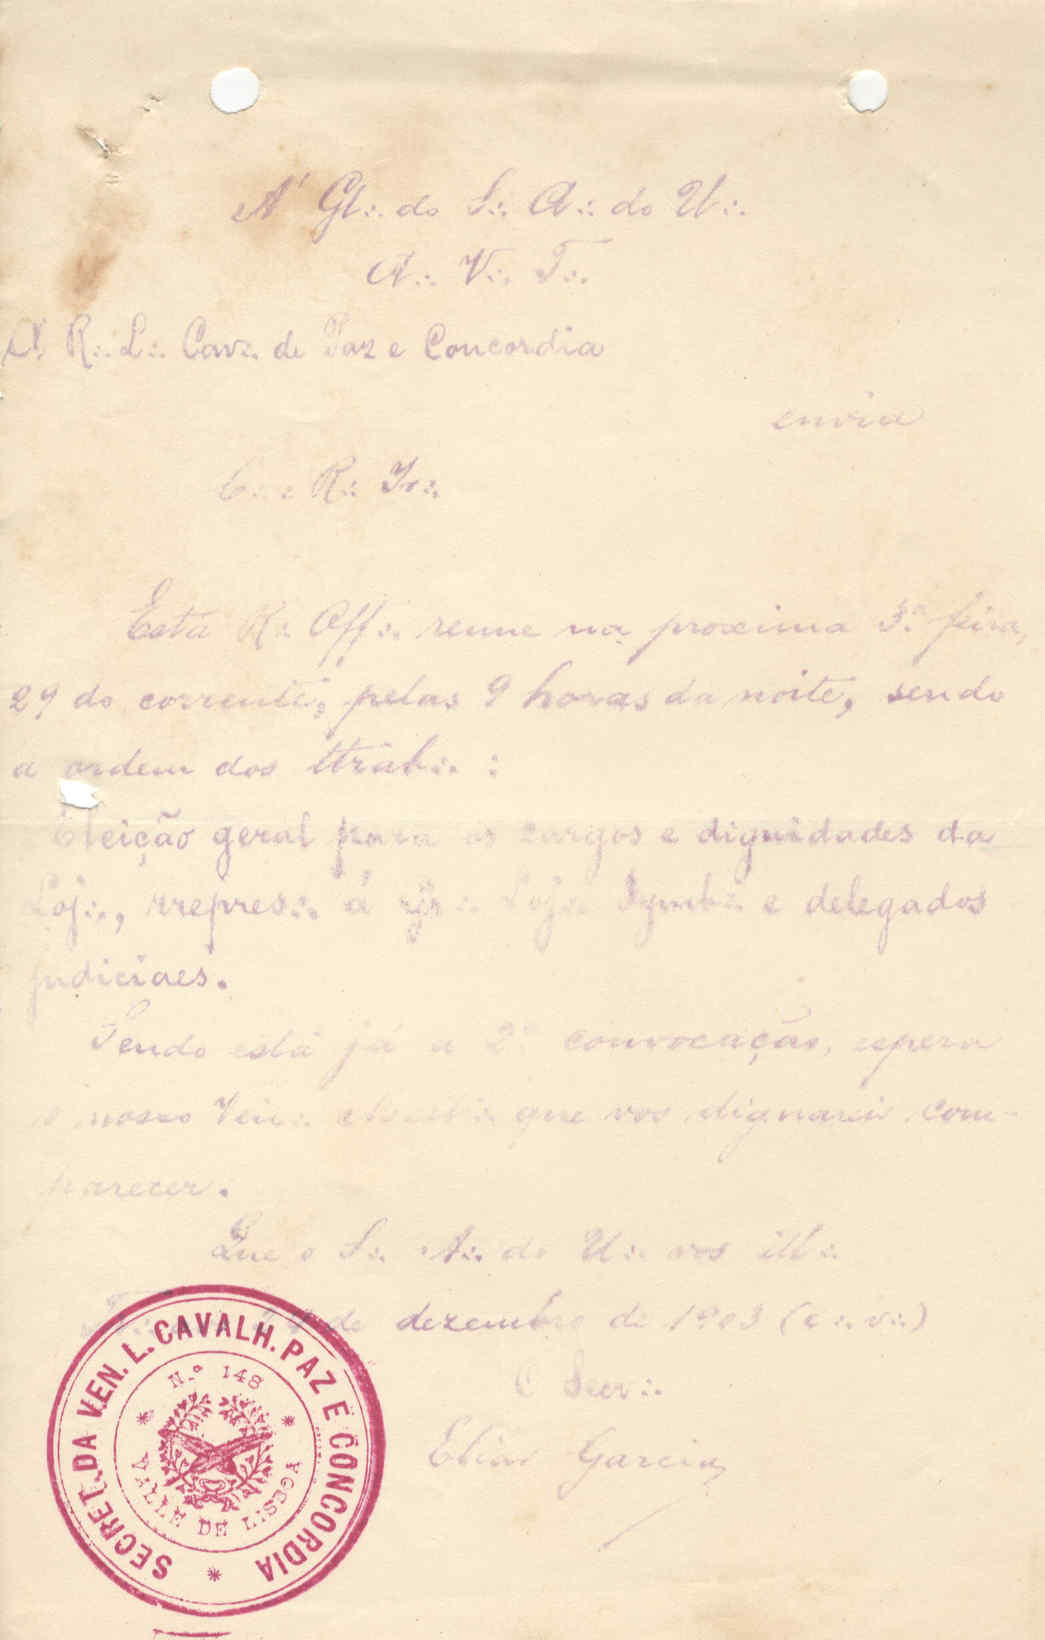 A' Gl∴ do S∴ A∴ do U∴
A∴ V∴ T∴
A R∴ L∴ Cav∴ de Paz e Concordia
envia
C∴ e R∴ Ir∴
Esta R∴ Off∴ reune na proxima 3.ª feira,
29 do corrente, pelas 9 horas da noite, sendo
a ordem dos ttrab∴ :
Eleição geral para os cargos e dignidades da
Loj∴, rrepres∴ á Gr∴ Loj∴ Symb∴ e delegados
judiciaes.
Sendo esta já a 2ª convocação, espera
o nosso Ven∴ que vos dignareis com-
parecer.
Que o S∴ A∴ do U∴ vos ill∴
de dezembro de 1903 (e∴ v∴)
O Secr∴
Elias Garcia
SECRET. DA VEN. L. CAVALH. PAZ E CONCORDIA
N.º 148
VALLE DE LISBOA